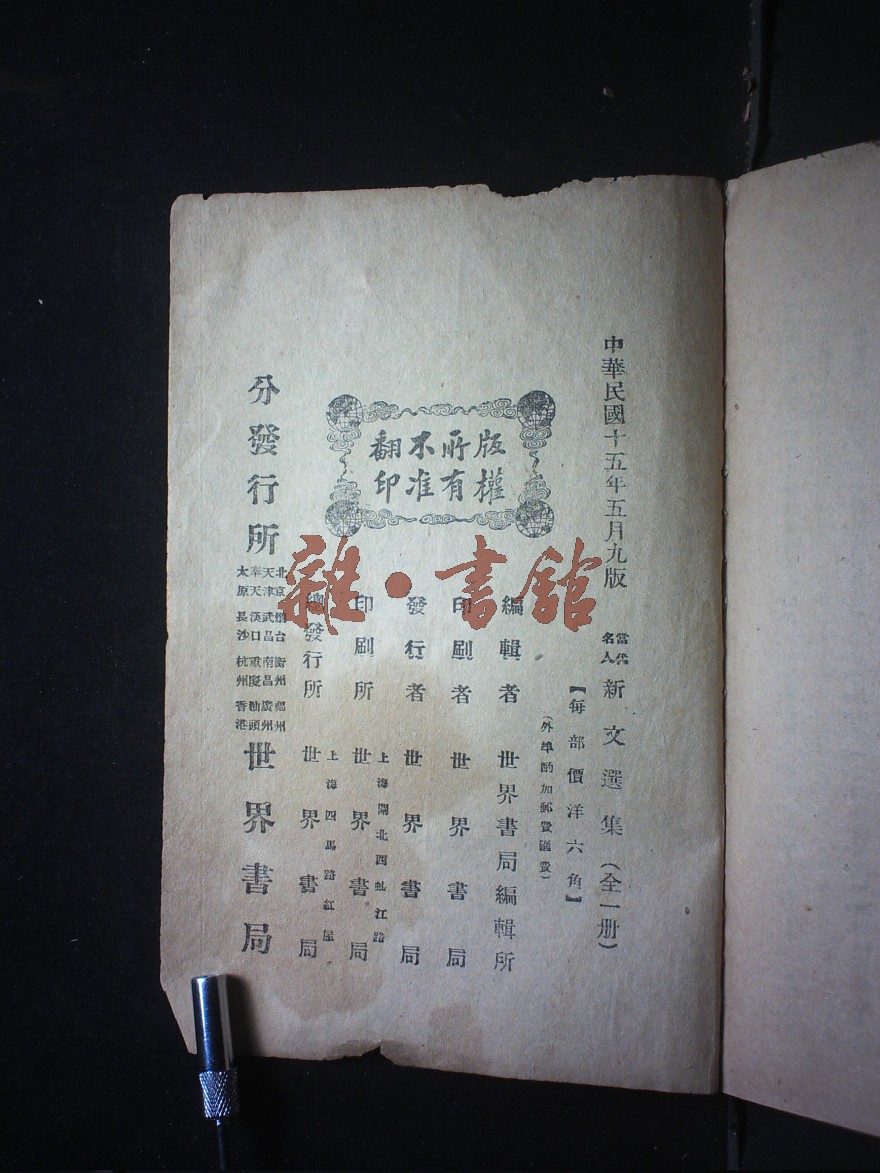 中華民國十五年五月九版
當代名人 新文選集（全一册）
【每部價洋六角】
（外埠酌加郵費匯費）
編輯者 世界書局編輯所
印刷者 世界書局
發行者 世界書局
上海閘北西虬江路
印刷所 世界書局
上海四馬路紅屋
總發行所 世界書局
版權所有不准翻印
分發行所
北京 煙台 衢州 福州
天津 武昌 南昌 廣州
奉天 漢口 重慶 汕頭
太原 長沙 杭州 香港
世界書局
雜·書館